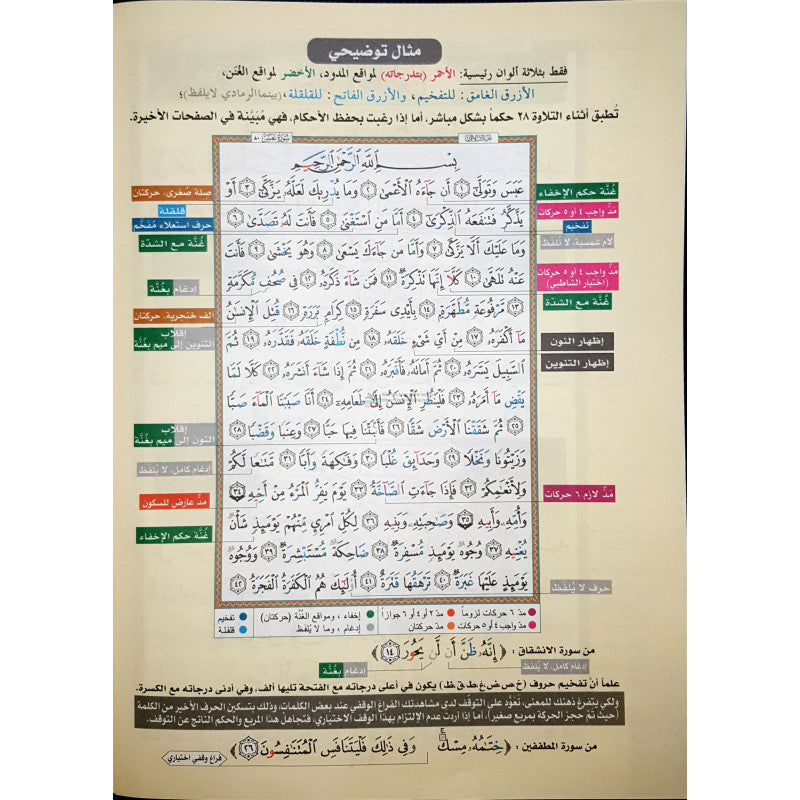 مثال توضيحي
فقط بثلاثة ألوان رئيسية: الأحمر (بتدرجاته) لمواقع المدود، الأخضر لمواقع الغُنَن،
الأزرق الغامق: للتفخيم، والأزرق الفاتح: للقلقلة، (بينما الرمادي لا يلفظ)؛
تُطبق أثناء التلاوة ٢٨ حكماً بشكل مباشر، أما إذا رغبت بحفظ الأحكام، فهي مُبَيّنة في الصفحات الأخيرة.
سُورَةُ عَبَسَ ٨٠
بِسْمِ اللَّهِ الرَّحْمَٰنِ الرَّحِيمِ
عَبَسَ وَتَوَلَّىٰٓ ١ أَن جَآءَهُ الْأَعْمَىٰ ٢ وَمَا يُدْرِيكَ لَعَلَّهُۥ يَزَّكَّىٰٓ ٣ أَوْ
يَذَّكَّرُ فَتَنفَعَهُ الذِّكْرَىٰٓ ٤ أَمَّا مَنِ اسْتَغْنَىٰ ٥ فَأَنتَ لَهُۥ تَصَدَّىٰ ٦
وَمَا عَلَيْكَ أَلَّا يَزَّكَّىٰ ٧ وَأَمَّا مَن جَآءَكَ يَسْعَىٰ ٨ وَهُوَ يَخْشَىٰ ٩ فَأَنتَ
عَنْهُ تَلَهَّىٰ ١٠ كَلَّآ إِنَّهَا تَذْكِرَةٌ ١١ فَمَن شَآءَ ذَكَرَهُۥ ١٢ فِى صُحُفٍ مُّكَرَّمَةٍ
١٣ مَّرْفُوعَةٍ مُّطَهَّرَةٍۭ ١٤ بِأَيْدِى سَفَرَةٍ ١٥ كِرَامٍۭ بَرَرَةٍ ١٦ قُتِلَ الْإِنسَٰنُ
مَآ أَكْفَرَهُۥ ١٧ مِنْ أَىِّ شَىْءٍ خَلَقَهُۥ ١٨ مِن نُّطْفَةٍ خَلَقَهُۥ فَقَدَّرَهُۥ ١٩ ثُمَّ
السَّبِيلَ يَسَّرَهُۥ ٢٠ ثُمَّ أَمَاتَهُۥ فَأَقْبَرَهُۥ ٢١ ثُمَّ إِذَا شَآءَ أَنشَرَهُۥ ٢٢ كَلَّا لَمَّا
يَقْضِ مَآ أَمَرَهُۥ ٢٣ فَلْيَنظُرِ الْإِنسَٰنُ إِلَىٰ طَعَامِهِۦٓ ٢٤ أَنَّا صَبَبْنَا الْمَآءَ صَبًّا
٢٥ ثُمَّ شَقَقْنَا الْأَرْضَ شَقًّا ٢٦ فَأَنۢبَتْنَا فِيهَا حَبًّا ٢٧ وَعِنَبًا وَقَضْبًا ٢٨
وَزَيْتُونًا وَنَخْلًا ٢٩ وَحَدَآئِقَ غُلْبًا ٣٠ وَفَٰكِهَةً وَأَبًّا ٣١ مَّتَٰعًا لَّكُمْ
وَلِأَنْعَٰمِكُمْ ٣٢ فَإِذَا جَآءَتِ الصَّآخَّةُ ٣٣ يَوْمَ يَفِرُّ الْمَرْءُ مِنْ أَخِيهِ ٣٤
وَأُمِّهِۦ وَأَبِيهِ ٣٥ وَصَٰحِبَتِهِۦ وَبَنِيهِ ٣٦ لِكُلِّ امْرِئٍ مِّنْهُمْ يَوْمَئِذٍ شَأْنٌ
يُغْنِيهِ ٣٧ وُجُوهٌ يَوْمَئِذٍ مُّسْفِرَةٌ ٣٨ ضَاحِكَةٌ مُّسْتَبْشِرَةٌ ٣٩ وَوُجُوهٌ
يَوْمَئِذٍ عَلَيْهَا غَبَرَةٌ ٤٠ تَرْهَقُهَا قَتَرَةٌ ٤١ أُو۟لَٰٓئِكَ هُمُ الْكَفَرَةُ الْفَجَرَةُ ٤٢
غُنَّة حكم الإخفاء
مدّ واجب ٤ أو ٥ حركات
تفخيم
لام شمسية، لا تُلفظ
مدّ واجب ٤ أو ٥ حركات
(اختيار الشاطبي)
غُنَّة مع الشدّة
إظهار النون
إظهار التنوين
مدّ لازم ٦ حركات
حرف لا يُلفظ
صلة صُغرى، حركتان
قلقلة
حرف استعلاء مُفخَّم
غُنَّة مع الشدّة
إدغام بغُنَّة
ألف خنجرية، حركتان
إقلاب
التنوين إلى ميم بغُنَّة
إقلاب
النون إلى ميم بغُنَّة
إدغام كامل، لا يُلفظ
مدّ عارض للسكون
غُنَّة حكم الإخفاء
مدّ ٦ حركات لزوماً مدّ ٢ أو ٤ أو ٦ جوازاً إخفاء، ومواقع الغُنَّة (حركتان) تفخيم
مدّ واجب ٤ أو ٥ حركات مدّ حركتان إدغام، وما لا يُلفظ قلقلة
من سورة الانشقاق : ﴿ إِنَّهُۥ ظَنَّ أَن لَّن يَحُورَ ١٤ ﴾
إدغام كامل، لا يُلفظ
إدغام بغُنَّة
علماً أنّ تفخيم حروف (خ.ص.ض.غ.ط.ق.ظ) يكون في أعلى درجاته مع الفتحة تليها ألف، وفي أدنى درجاته مع الكسرة.
ولكي يتفرغ ذهنك للمعنى، تعوّد على التوقف لدى مشاهدتك الفراغ الوقفي عند بعض الكلمات، وذلك بتسكين الحرف الأخير من الكلمة
(حيث تمّ حجز الحركة بمربع صغير)، أما إذا أردت عدم الإلتزام بهذا الوقف الاختياري، فتجاهل هذا المربع والحكم الناتج عن التوقف.
من سورة المطففين : ﴿ خِتَٰمُهُۥ مِسْكٌ وَفِى ذَٰلِكَ فَلْيَتَنَافَسِ الْمُتَنَٰفِسُونَ ٢٦ ﴾
فراغ وقفي اختياري